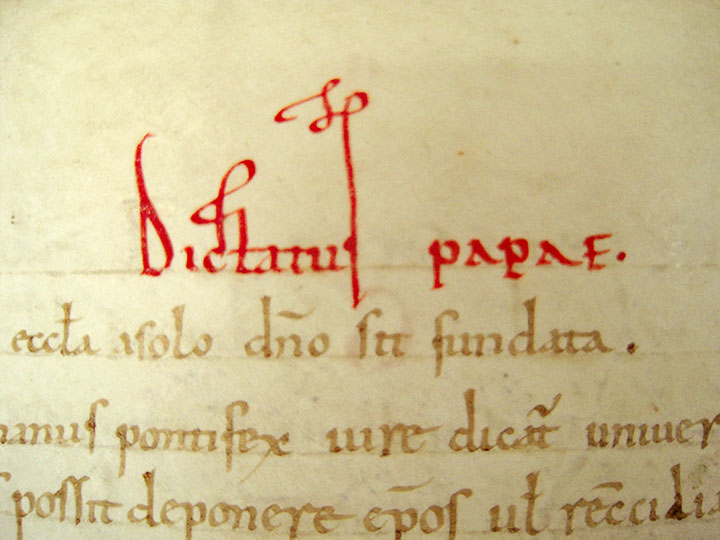 Dictatus papae.
eccla asolo dno sit fundata.
manus pontifex iure dicat univer
s possit deponere epos ul reccilia